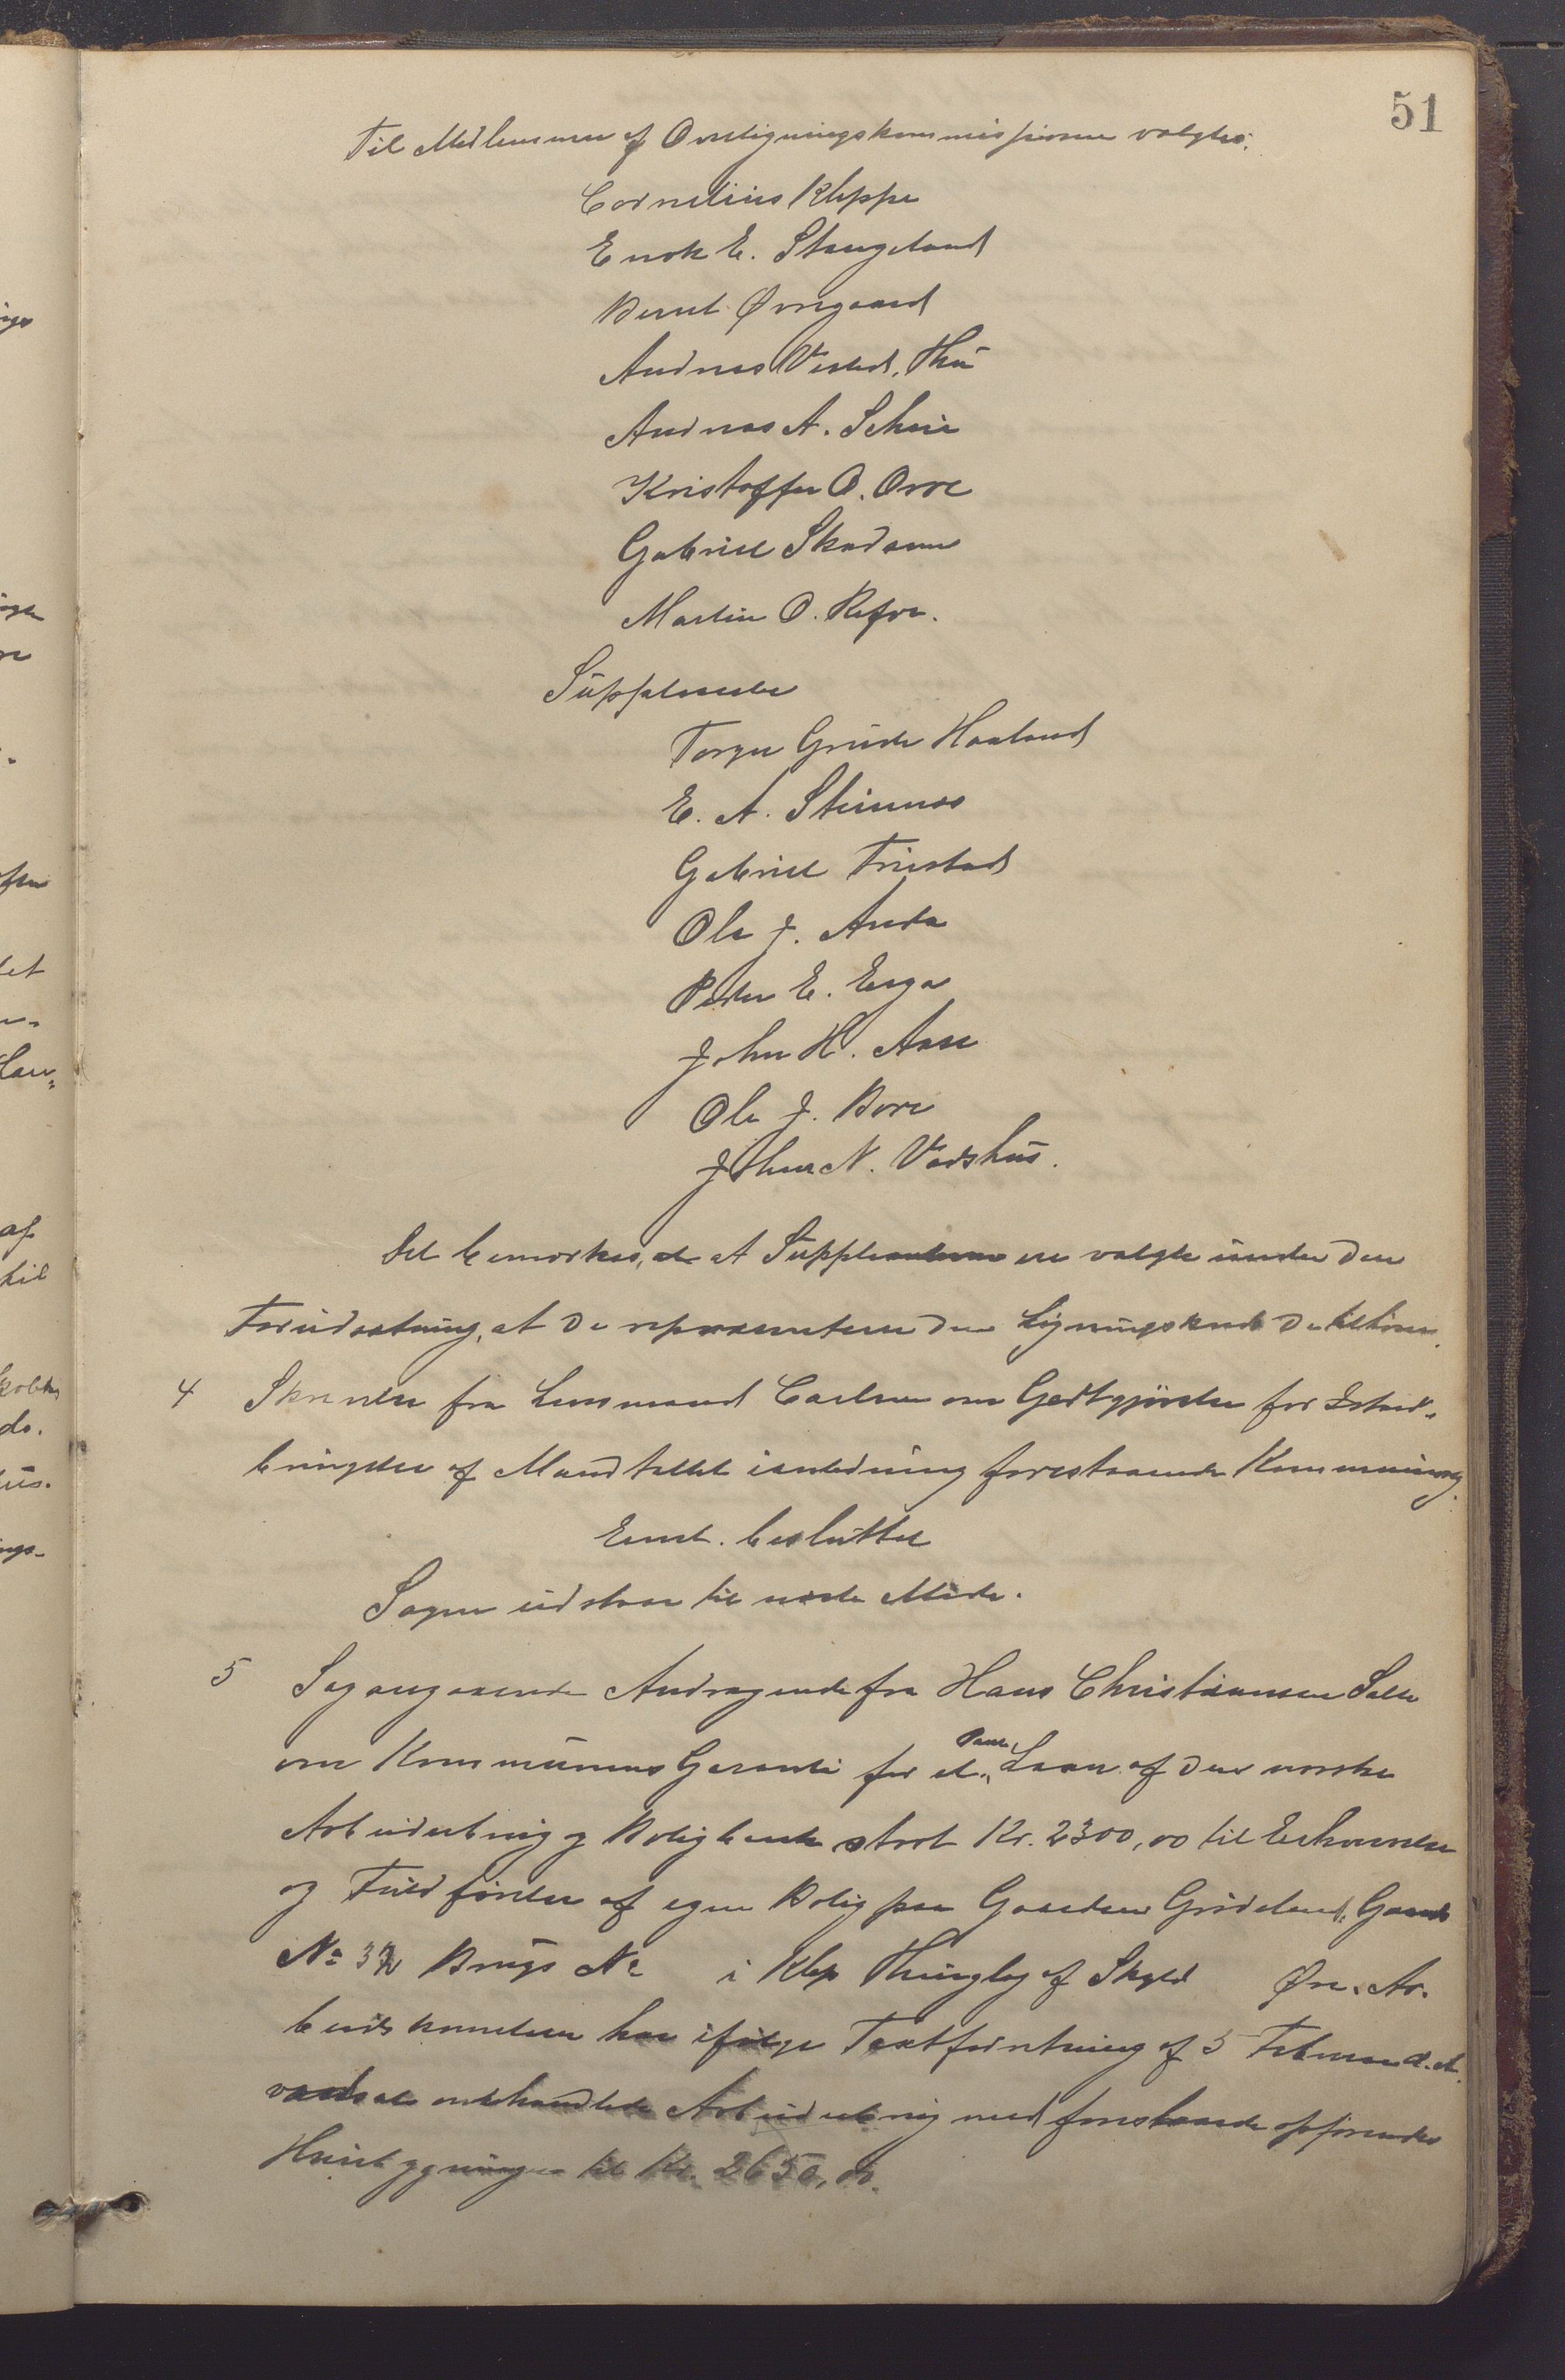 51
Til Medlemmer af Overligningskommissionen valgtes:
Cornelius Kleppe
Enok E. Stangeland
Bernt Øvregaard
Andreas Vested. Thu
Andreas A. Scheie
Kristoffer O. Orre
Gabriel Skadsem
Martin O. Refve.
Supplenter
Torger Grude Haaland
E. A. Steinnes
Gabriel Friestad
Ole J. Anda
Peder E. Erga
John H. Aase
Ole J. Bore
John N. Vadshus.
Det bemærkes, at Suppleanterne ere valgte under den
Forudsætning, at de repræsenterer den Ligningskreds de tilhører.
4 Skrivelse fra Lensmand Carlsen om Godtgjørelse for Istand-
bringelse af Mandtallet i anledning forestaaende Kommunevalg.
Eenst. besluttet
Sagen udstaar til næste Møde.
5 Sag angaaende Andragende fra Hans Christiansen Sele
om Kommunens Garanti for et Pante Laan af den norske
Arbeiderbrug og Boligbank stort Kr. 2300,00 til Erhvervelse
og Fuldførelse af egen Bolig paa Gaarden Grødeland, Gaards
No 32 Brugs No i Klep Thinglag af Skyld Øre. Ar-
beidskomiteen har ifølge Taxtforretning af 5 Februar d. A.
værdsat omhandlede Arbeiderbrug med forestaaende opførendes
Husebygninger til Kr. 2650,00.